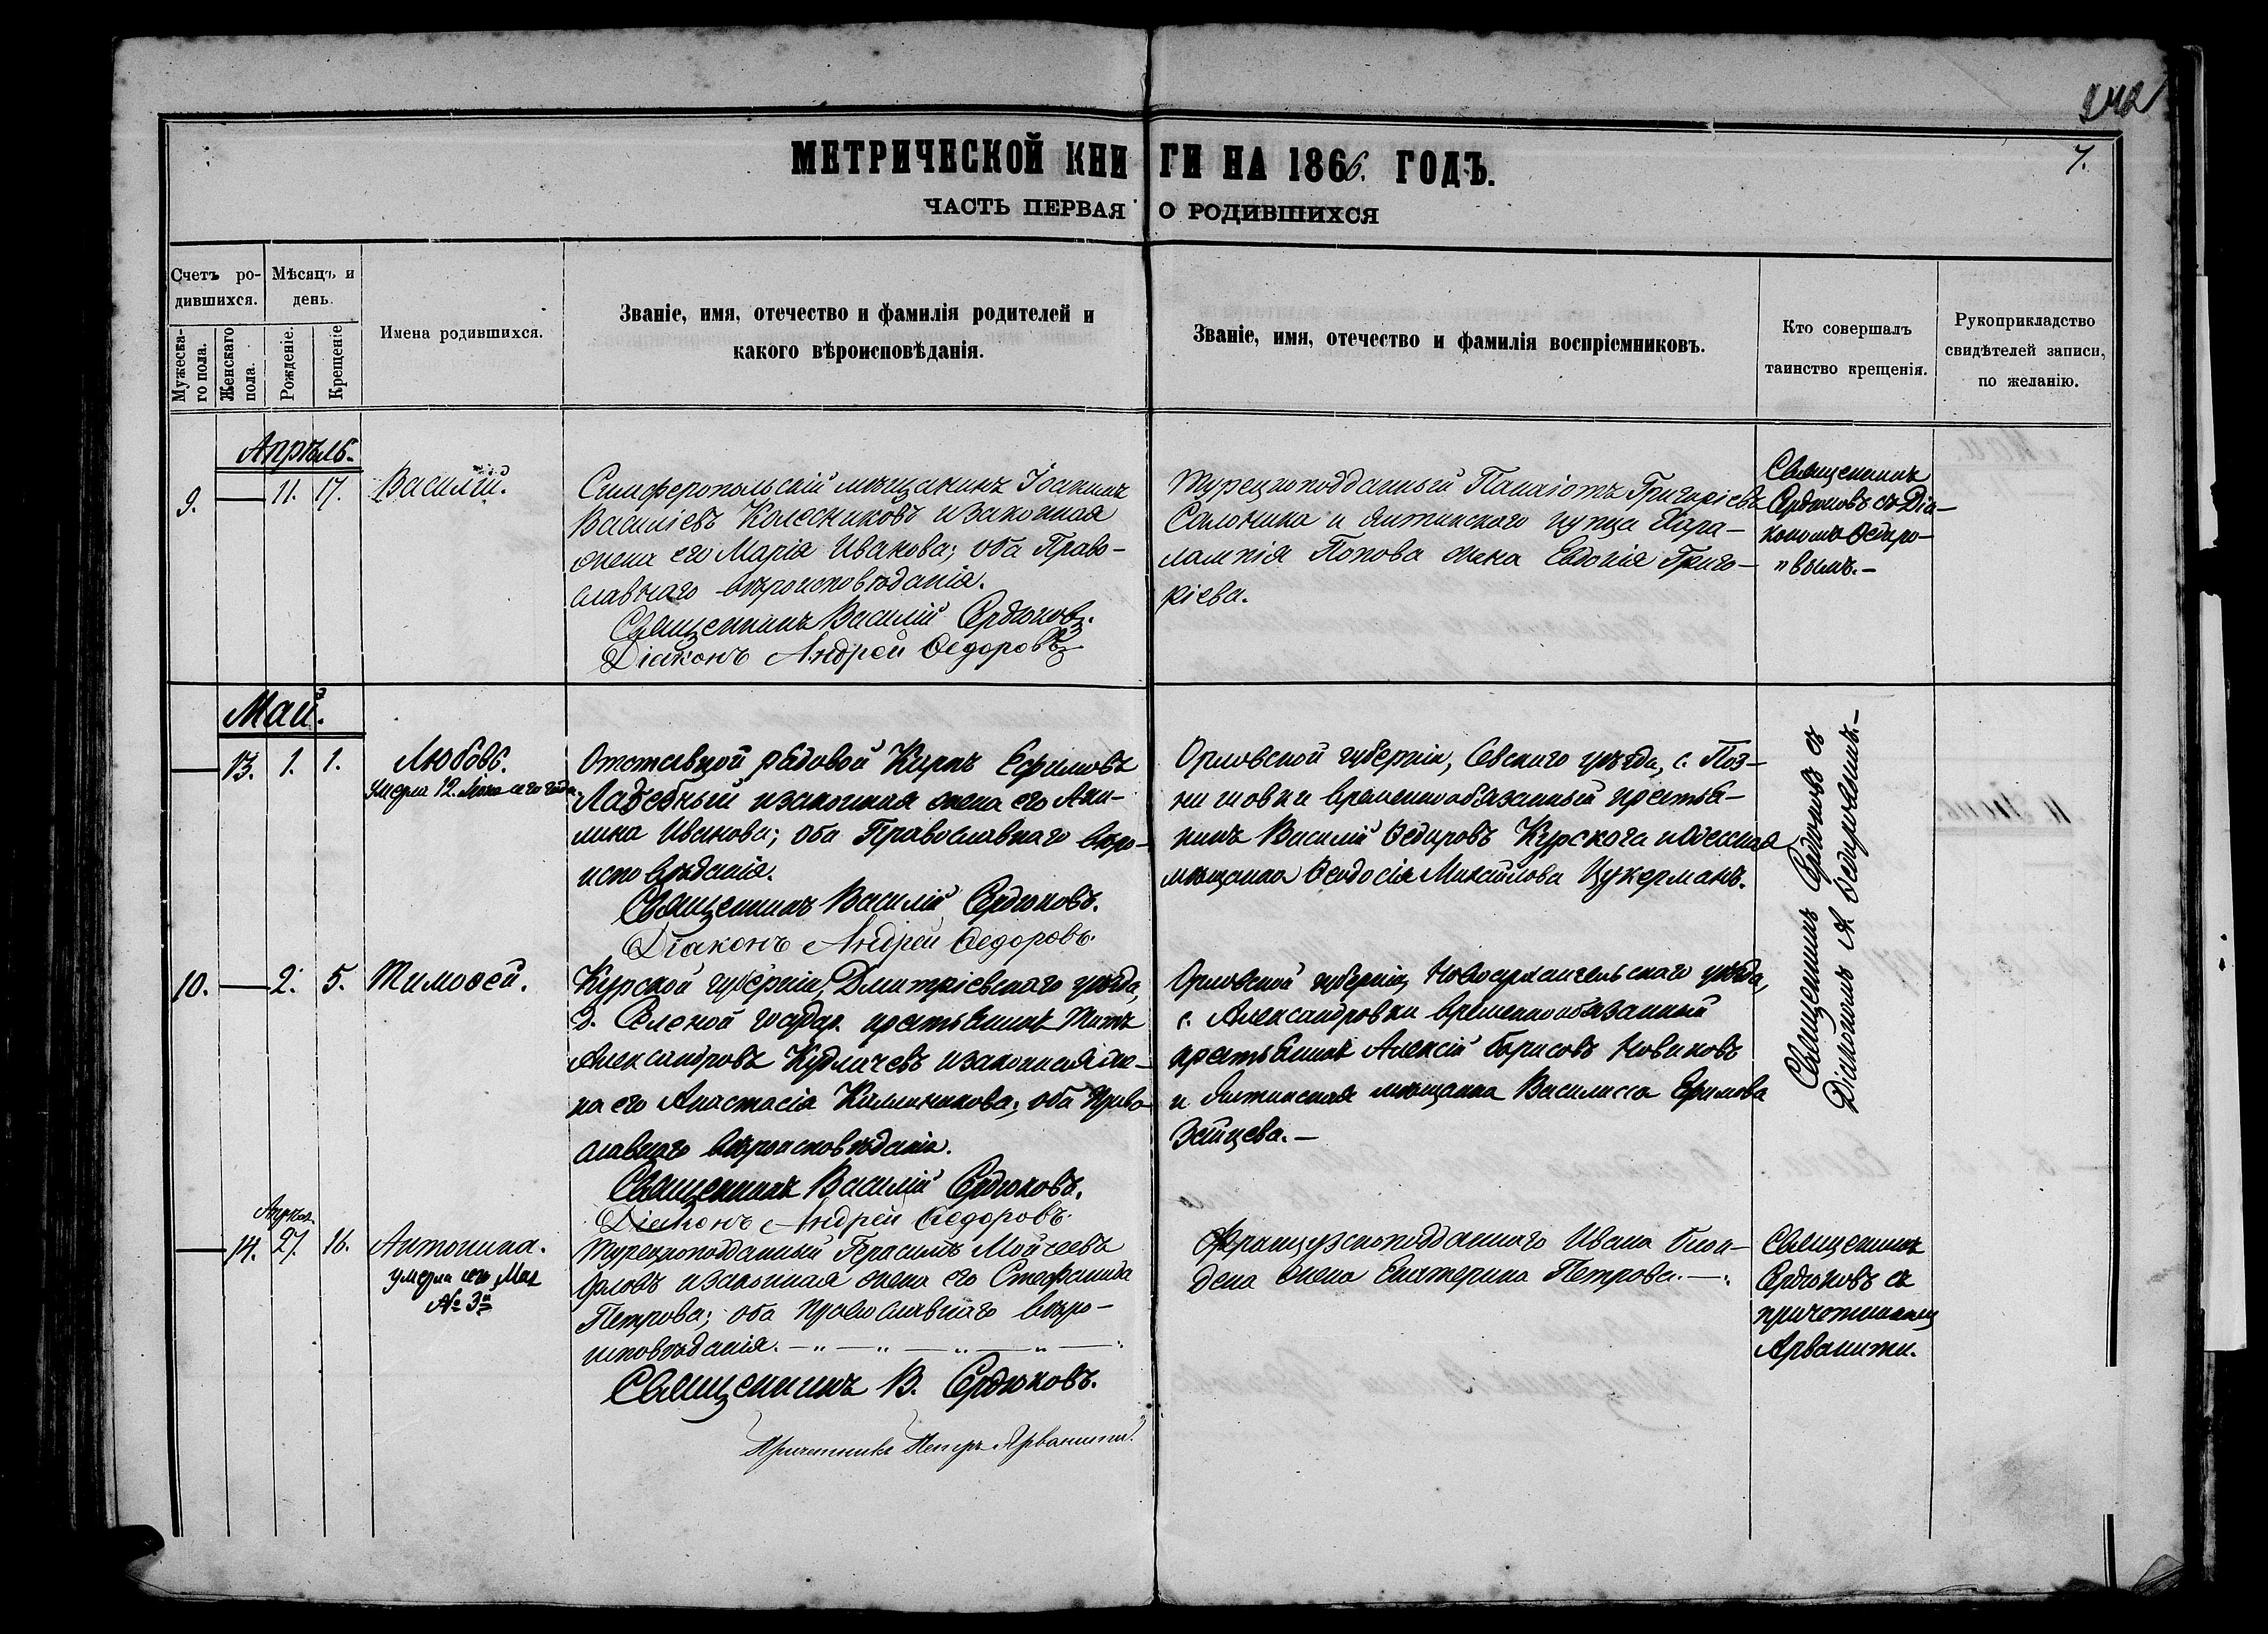 242
7.
МЕТРИЧЕСКОЙ КНИГИ НА 1866. ГОДЪ.
ЧАСТЬ ПЕРВАЯ О РОДИВШИХСЯ
Счетъ ро-
дившихся.
Мужеска-
го пола.
Женскаго
пола.
Мѣсяцъ и
день.
Рожденіе.
Крещеніе
Имена родившихся.
Званіе, имя, отечество и фамилія родителей и
какого вѣроисповѣданія.
Званіе, имя, отечество и фамилія воспріемниковъ.
Кто совершалъ
таинство крещенія.
Рукоприкладство
свидѣтелей записи,
по желанію.
Апрѣль.
9. — 11. 17.
Василій.
Симферопольскій мѣщанинъ Іоакимъ
Василіевъ Колесниковъ и законная
жена его Марія Иванова; оба Право-
славнаго вѣроисповѣданія.
Священникъ Василій Сердюковъ.
Діаконъ Андрей Ѳедоровъ
Турецкоподданный Панаіотъ Григоріевъ
Салоника и Ялтинскаго купца Хара-
лампія Попова жена Евдокія Григо-
ріева.
Священникъ
Сердюковъ съ Діа-
кономъ Ѳедоро-
вымъ.—
Май.
— 13. 1. 1.
Любовь.
умерла 12. сего года.
Отставной рядовой Карпъ Ефимовъ
и законная жена его Аки-
лина Иванова; оба Православнаго вѣро-
исповѣданія.
Священникъ Василій Сердюковъ.
Діаконъ Андрей Ѳедоровъ.
Орловской губерніи, Севскаго уѣзда, с. Поз-
временнообязанный крестья-
нинъ Василій Ѳедоровъ и Одесская
мѣщанка Ѳеодосія Михайлова Цукерманъ.
Священникъ Сердюковъ съ
Діакономъ А. Ѳедоровымъ.—
10. — 2. 5.
Тимоѳей.
Курской губерніи, Дмитріевскаго уѣзда,
государ. крестьянинъ Титъ
Александровъ и законная же-
на его Анастасія оба Право
славнаго вѣроисповѣданія.
Священникъ Василій Сердюковъ.
Діаконъ Андрей Ѳедоровъ.
Орловской губерніи, уѣзда,
с. Александровки временнообязанный
крестьянинъ Алексій Борисовъ Новиковъ
и Ялтинская мѣщанка Василисса Ефимова
Зайцева.—
Апрѣл.
— 14. 27. 16.
Антонина.
умерла сего Мая
№ 3й
Турецкоподданный Герасимъ Мойсеевъ
и законная жена его Стефанида
Петрова; оба православнаго вѣро-
исповѣданія.
Священникъ В. Сердюковъ.
Причетникъ Петръ Арванити.
Французскоподданнаго Ивана
жена Екатерина Петрова.—
Священникъ
Сердюковъ съ
причетникомъ
Арванити.